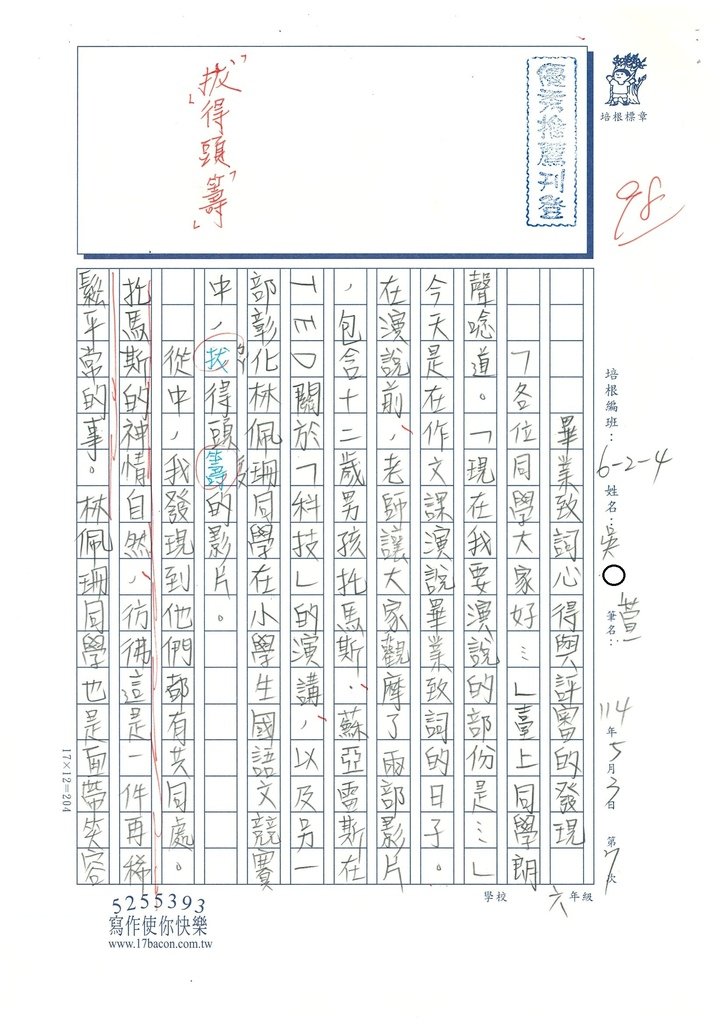 培根標章
98
優秀推薦刊登
「拔得頭籌」
培根編班：6-2-4
姓名：吳○萱
筆名：
114年5月3日 第7次
畢業致詞心得與評審的發現
「各位同學大家好…」臺上同學朗
聲唸道。「現在我要演說的部份是…」
今天是在作文課演說畢業致詞的日子。
在演說前，老師讓大家觀摩了兩部影片
，包含十二歲男孩托馬斯．蘇亞雷斯在
TED關於「科技」的演講，以及另一
部彰化林佩珊同學在小學生國語文競賽
中，拔得頭籌的影片。
ㄅㄚˊ
從中，我發現到他們都有共同處。
托馬斯的神情自然，彷彿這是一件再稀
鬆平常的事。林佩珊同學也是面帶笑容
17×12=204
學校 六年級
5255393
寫作使你快樂
www.17bacon.com.tw